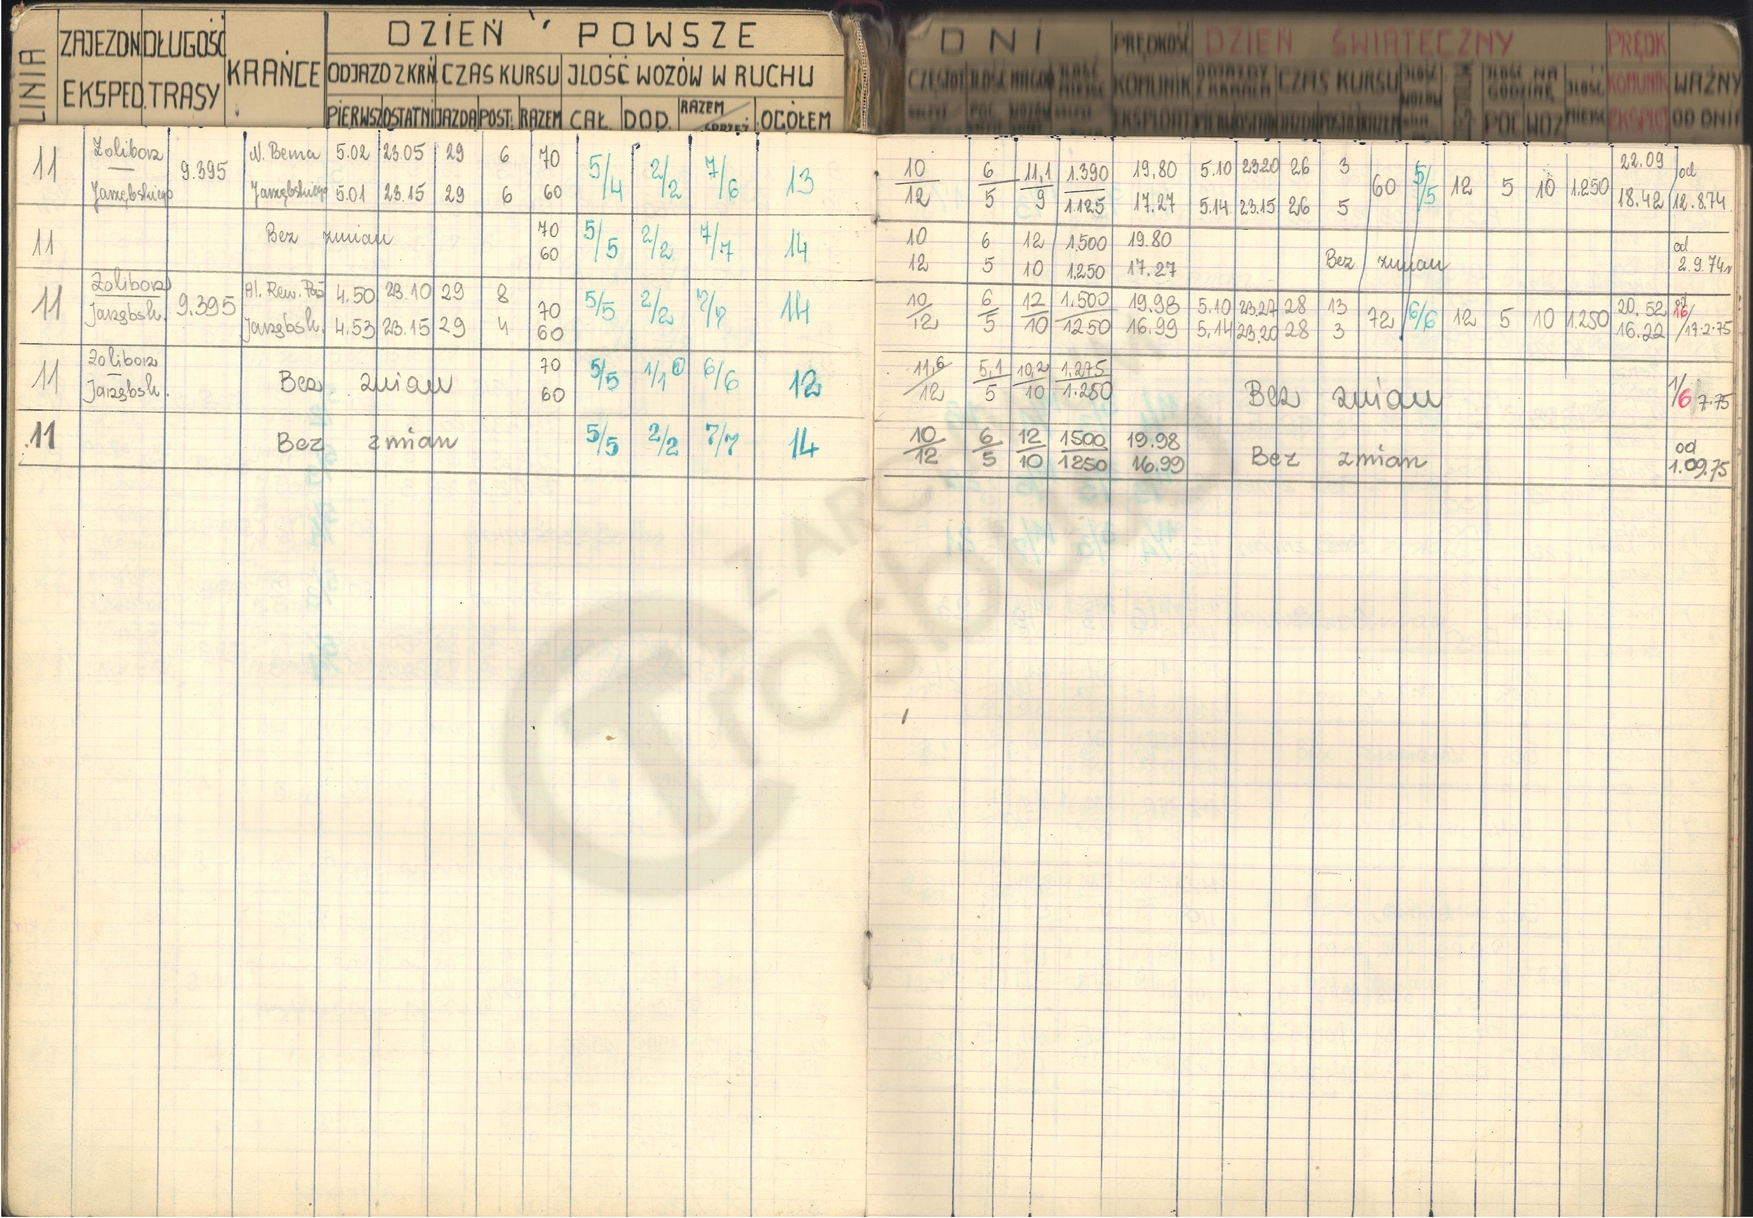 DZIEŃ POWSZE
DNI
DZIEŃ ŚWIĄTECZNY
LINIA
ZAJEZDN
EKSPED.
DŁUGOŚĆ
TRASY
KRAŃCE
ODJAZD Z KRŃ
CZAS KURSU
JLOŚĆ WOZÓW W RUCHU
PIERWSZ
OSTATNI
JAZDA
POST.
RAZEM
CAŁ.
DOD.
RAZEM
OGÓŁEM
PRĘDKOŚĆ
KOMUNIK
EKSPLOAT
CZAS KURSU
PRĘDK
KOMUNIK
WAŻNY
OD DNIA
11 Żoliborz 9.395 N. Bema 5.02 23.05 29 6 70 5/4 2/2 7/6 13 10 6 11,1 1.390 19.80 5.10 2320 26 3 60 5/5 12 5 10 1.250 22.09 od
Jarzębskiego Jarzębskiego 5.01 23.15 29 6 60 12 5 9 1.125 17.27 5.14 23.15 26 5 18.42 12.8.74
11 Bez zmian 70 5/5 2/2 7/7 14 10 6 12 1,500 19.80 Bez zmian od
60 12 5 10 1250 17.27 2.9.74r
11 Żoliborz 9.395 Al. Rew. Paź 4.50 23.10 29 8 70 5/5 2/2 7/7 14 10 6 12 1.500 19.98 5.10 23.27 28 13 72 6/6 12 5 10 1.250 20.52 16/
Jarzębsk. Jarzębsk. 4.53 23.15 29 4 60 12 5 10 1250 16.99 5.14 23.20 28 3 16.22 /17.2.75
11 Żoliborz Bez zmian 70 5/5 1/1 6/6 12 11,6 5,1 10,2 1.275 Bez zmian 1/
Jarzębsk. 60 12 5 10 1.250 6/7.75
11 Bez zmian 5/5 2/2 7/7 14 10 6 12 1500 19.98 Bez zmian od
12 5 10 1250 16.99 1.09.75
Z ARC
Trasbus